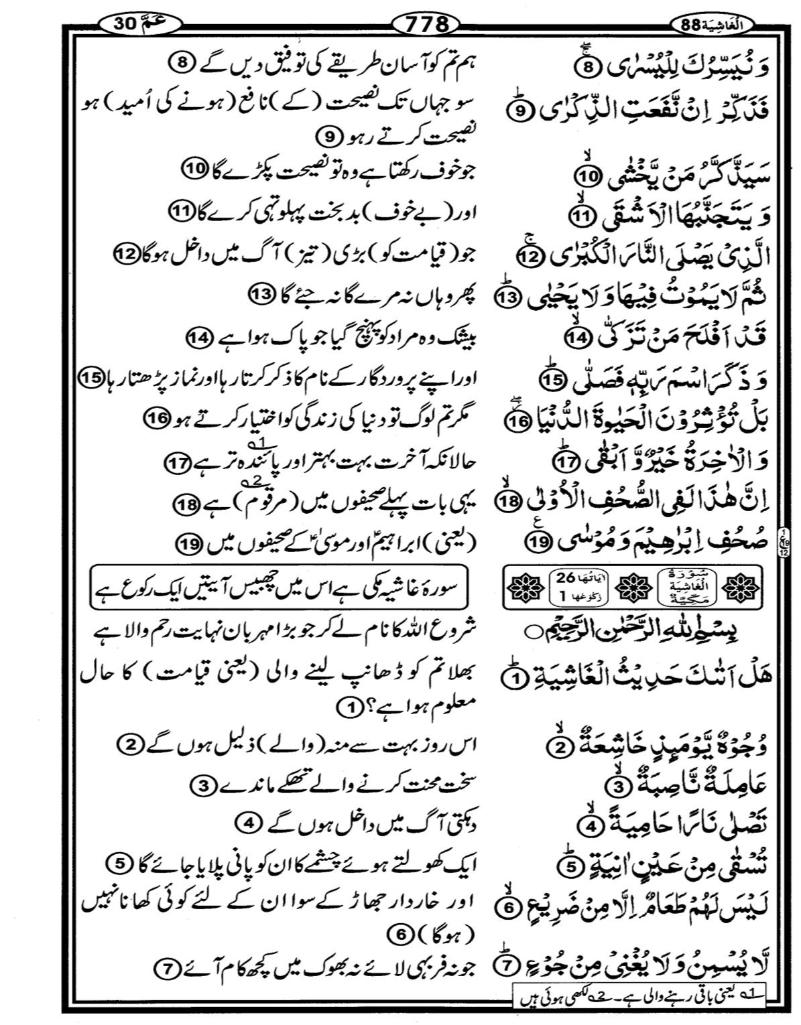 الغاشية 88 778 عَمَّ 30
وَنُيَسِّرُكَ لِلْيُسْرٰى ۚۖ ⑧ ہم تم کو آسان طریقے کی توفیق دیں گے ⑧
فَذَكِّرْ اِنْ نَّفَعَتِ الذِّكْرٰى ؕ ⑨ سو جہاں تک نصیحت (کے) نافع (ہونے کی اُمید) ہو
نصیحت کرتے رہو ⑨
سَيَذَّكَّرُ مَنْ يَّخْشٰى ۙ ⑩ جو خوف رکھتا ہے وہ تو نصیحت پکڑے گا ⑩
وَيَتَجَنَّبُهَا الْاَشْقَى ۙ ⑪ اور (بے خوف) بدبخت پہلو تہی کرے گا ⑪
الَّذِىْ يَصْلَى النَّارَ الْكُبْرٰى ۚ ⑫ جو (قیامت کو) بڑی (تیز) آگ میں داخل ہوگا ⑫
ثُمَّ لَا يَمُوْتُ فِيْهَا وَلَا يَحْيٰى ؕ ⑬ پھر وہاں نہ مرے گا نہ جئے گا ⑬
قَدْ اَفْلَحَ مَنْ تَزَكّٰى ۙ ⑭ بیشک وہ مراد کو پہنچ گیا جو پاک ہوا ہے ⑭
وَذَكَرَ اسْمَ رَبِّهٖ فَصَلّٰى ؕ ⑮ اور اپنے پروردگار کے نام کا ذکر کرتا رہا اور نماز پڑھتا رہا ⑮
بَلْ تُؤْثِرُوْنَ الْحَيٰوةَ الدُّنْيَا ۖ ⑯ مگر تم لوگ تو دنیا کی زندگی کو اختیار کرتے ہو ⑯
وَالْاٰخِرَةُ خَيْرٌ وَّ اَبْقٰى ؕ ⑰ حالانکہ آخرت بہت بہتر اور پائندہ تر ہے 1؎ ⑰
اِنَّ هٰذَا لَفِى الصُّحُفِ الْاُوْلٰى ۙ ⑱ یہی بات پہلے صحیفوں میں (مرقوم) 2؎ ہے ⑱
صُحُفِ اِبْرٰهِيْمَ وَمُوْسٰى ع ⑲ (یعنی) ابراہیمؑ اور موسیٰؑ کے صحیفوں میں ⑲
سُوْرَةُ الْغَاشِيَةِ مَكِّيَّةٌ اٰيَاتُهَا 26 رُكُوْعُهَا 1 سورۂ غاشیہ مکی ہے اس میں چھبیس آیتیں ایک رکوع ہے
بِسْمِ اللّٰهِ الرَّحْمٰنِ الرَّحِيْمِ ○ شروع اللہ کا نام لے کر جو بڑا مہربان نہایت رحم والا ہے
هَلْ اَتٰىكَ حَدِيْثُ الْغَاشِيَةِ ؕ ① بھلا تم کو ڈھانپ لینے والی (یعنی قیامت) کا حال
معلوم ہوا ہے؟ ①
وُجُوْهٌ يَّوْمَئِذٍ خَاشِعَةٌ ۙ ② اس روز بہت سے منہ (والے) ذلیل ہوں گے ②
عَامِلَةٌ نَّاصِبَةٌ ۙ ③ سخت محنت کرنے والے تھکے ماندے ③
تَصْلٰى نَارًا حَامِيَةً ۙ ④ دہکتی آگ میں داخل ہوں گے ④
تُسْقٰى مِنْ عَيْنٍ اٰنِيَةٍ ؕ ⑤ ایک کھولتے ہوئے چشمے کا ان کو پانی پلایا جائے گا ⑤
لَيْسَ لَهُمْ طَعَامٌ اِلَّا مِنْ ضَرِيْعٍ ۙ ⑥ اور خاردار جھاڑ کے سوا ان کے لئے کوئی کھانا نہیں
(ہوگا) ⑥
لَّا يُسْمِنُ وَلَا يُغْنِىْ مِنْ جُوْعٍ ؕ ⑦ جو نہ فربہی لائے نہ بھوک میں کچھ کام آئے ⑦
1؎ یعنی باقی رہنے والی ہے۔ 2؎ لکھی ہوئی ہیں